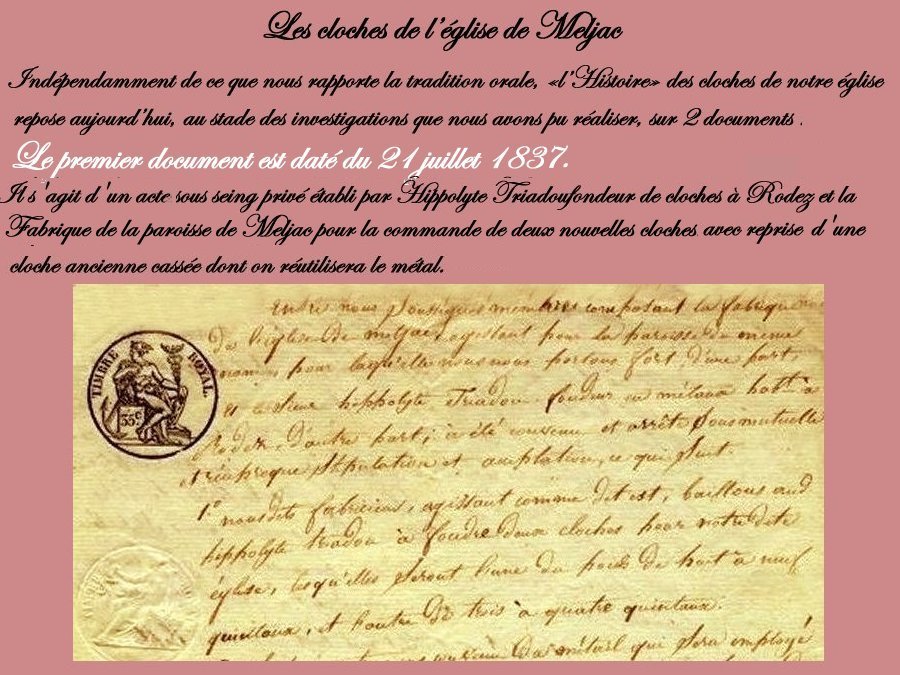 Les cloches de l'église de Meljac
Indépendamment de ce que nous rapporte la tradition orale, «l'Histoire» des cloches de notre église
repose aujourd'hui, au stade des investigations que nous avons pu réaliser, sur 2 documents .
Le premier document est daté du 21 juillet 1837.
Il s'agit d'un acte sous seing privé établi par Hippolyte Triadoufondeur de cloches à Rodez et la
Fabrique de la paroisse de Meljac pour la commande de deux nouvelles cloches avec reprise d'une
cloche ancienne cassée dont on réutilisera le métal.
Entre nous soussignés membres composant la fabrique
De l'église De meljac, agissant pour la paroisse du meme
pour laquelle nous nous portons fort, d'une part
TIMBRE ROYAL
35c
hippolyte Triadou fondeur en métaux habt à
Rodez D'autre part; à été convenu et arrêté sous mutuelle
et réciproque stipulation et ce qui suit.
1° nousdits fabriciens, agissant comme dit est, baillons aud
hippolyte triadou à foudre deux cloches pour notre dite
église, lesquelles seront l'une du poids de huit à neuf
quintaux, et l'autre De trois à quatre quintaux.
Du métail qui sera employé